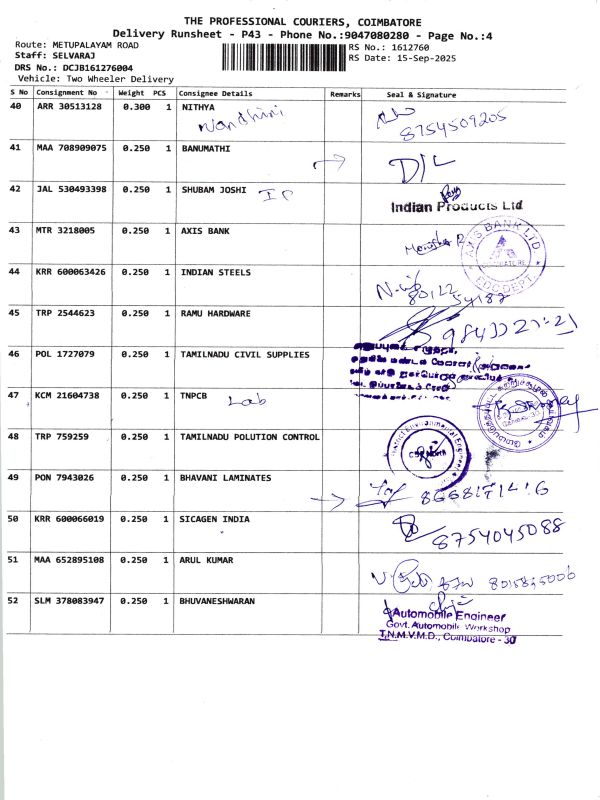 THE PROFESSIONAL COURIERS, COIMBATORE
Delivery Runsheet - P43 - Phone No.:9047080280 - Page No.:4
Route: METUPALAYAM ROAD
RS No.: 1612760
Staff: SELVARAJ
RS Date: 15-Sep-2025
DRS No.: DCJB161276004
Vehicle: Two Wheeler Delivery
S No Consignment No Weight PCS Consignee Details Remarks Seal & Signature
40 ARR 30513128 0.300 1 NITHYA
Nandhini 8754509205
41 MAA 708909075 0.250 1 BANUMATHI
D/L
42 JAL 530493398 0.250 1 SHUBAM JOSHI IP
Indian Products Ltd
43 MTR 3218005 0.250 1 AXIS BANK
AXIS BANK LTD.
COIMBATORE
44 KRR 600063426 0.250 1 INDIAN STEELS
80122
54187
45 TRP 2544623 0.250 1 RAMU HARDWARE
46 POL 1727079 0.250 1 TAMILNADU CIVIL SUPPLIES
47 KCM 21604738 0.250 1 TNPCB Lab
48 TRP 759259 0.250 1 TAMILNADU POLUTION CONTROL
District Environmental Engineer
49 PON 7943026 0.250 1 BHAVANI LAMINATES
50 KRR 600066019 0.250 1 SICAGEN INDIA
8754045088
51 MAA 652895108 0.250 1 ARUL KUMAR
52 SLM 378083947 0.250 1 BHUVANESHWARAN
Automobile Engineer
Govt. Automobile Workshop
T.N.M.V.M.D., Coimbatore - 30